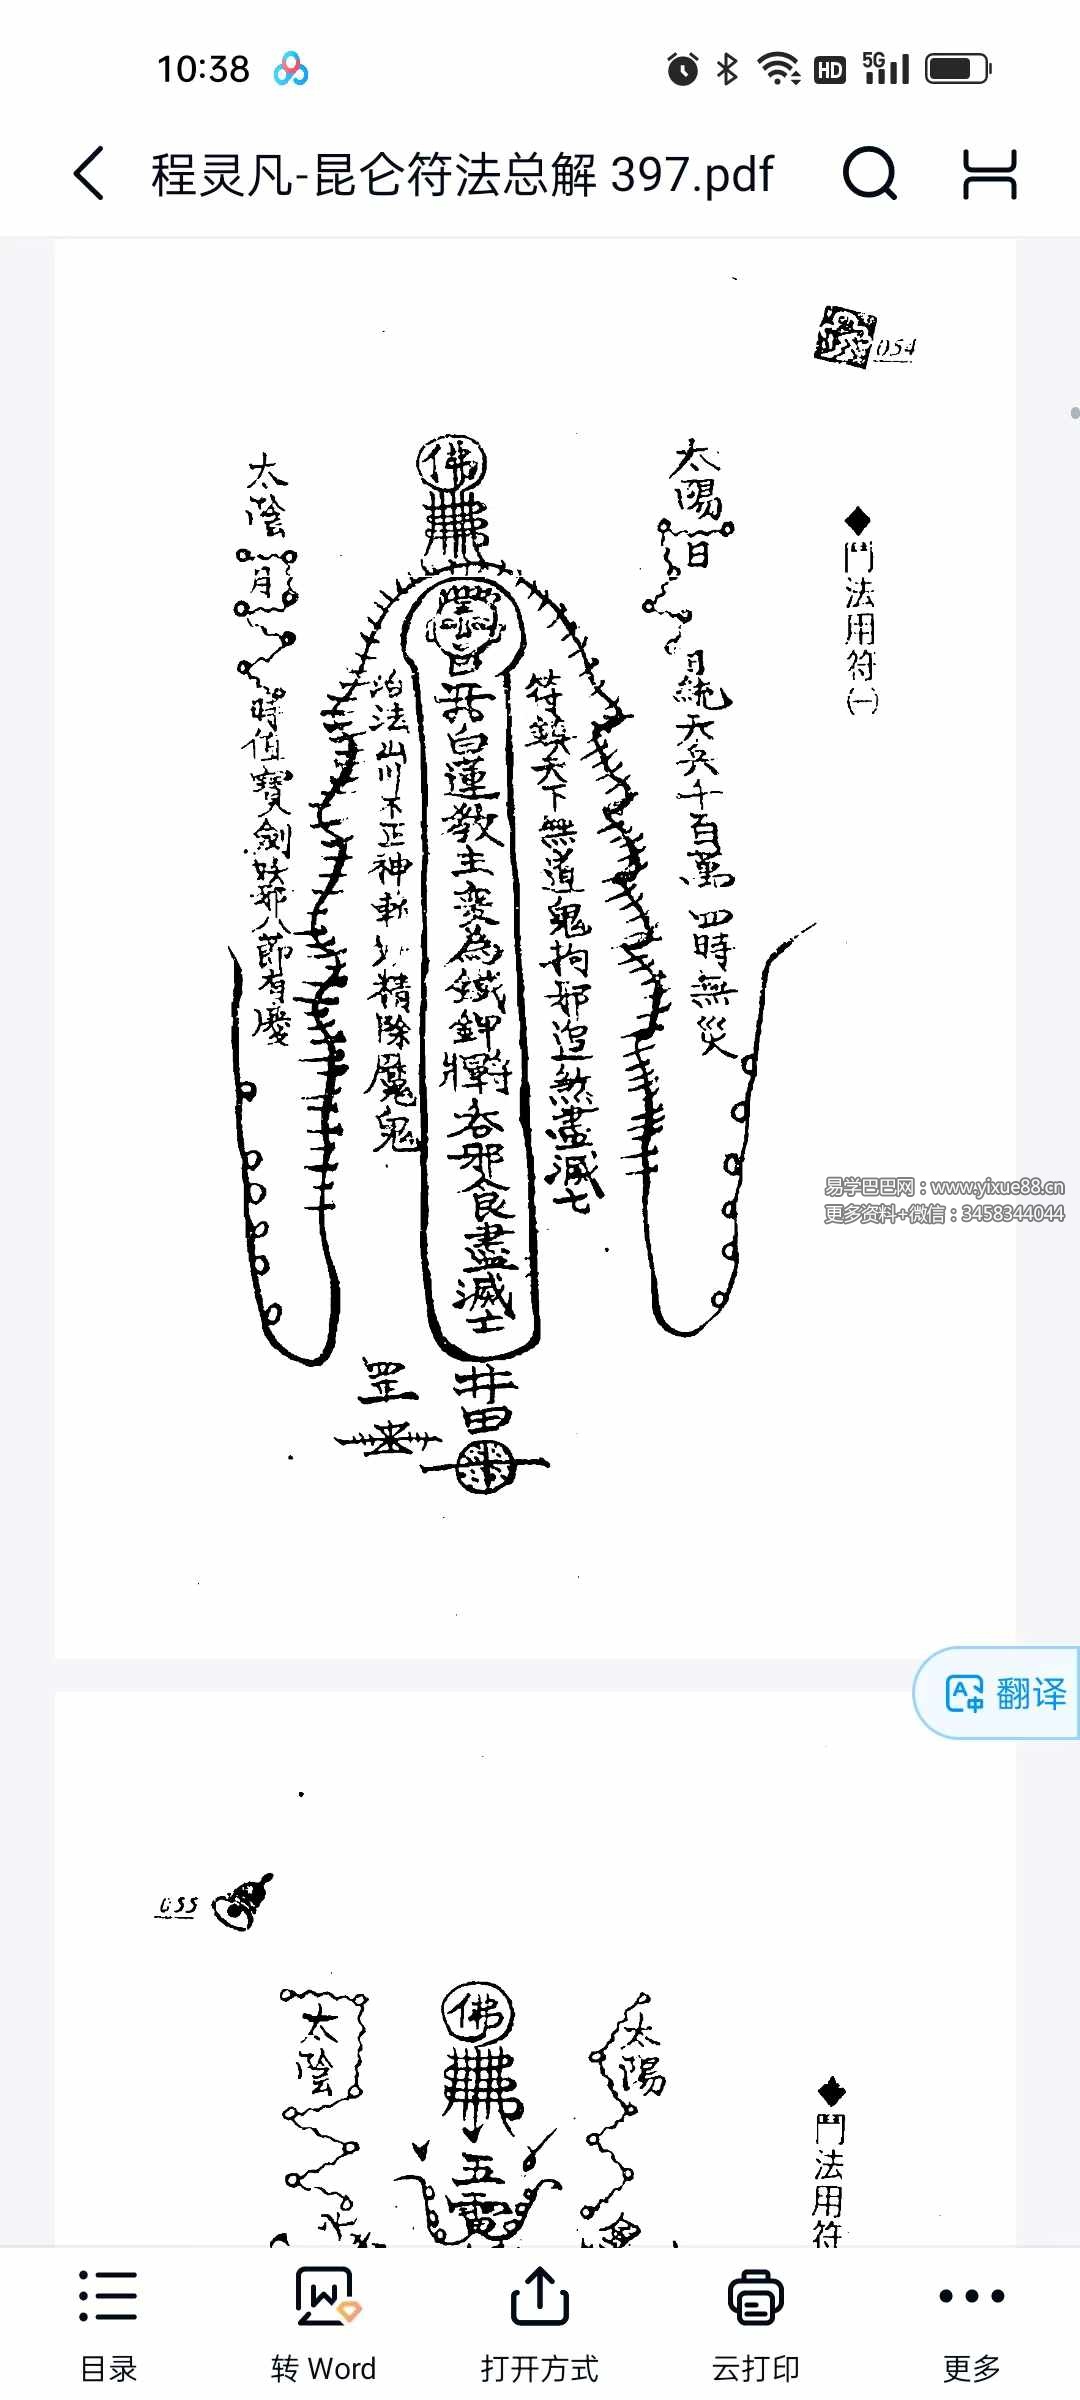 10:38
HD
5G
程灵凡-昆仑符法总解 397.pdf
054
◆鬥法用符(一)
太陽
日
統天兵千百萬四時無災
佛
符鎮天下無道鬼拘邪追煞盡滅亡
白蓮教主變為鐵鉀將軍吞邪食盡滅亡
治法山川不正神斬妖精除魔鬼
太陰
月
時值寶劍妖邪八節有慶
罡
井
田
易学巴巴网：www.yixue88.cn
更多资料+微信：3458344044
翻译
055
◆鬥法用符
太陽
佛
五雷
太陰
目录
转 Word
打开方式
云打印
更多